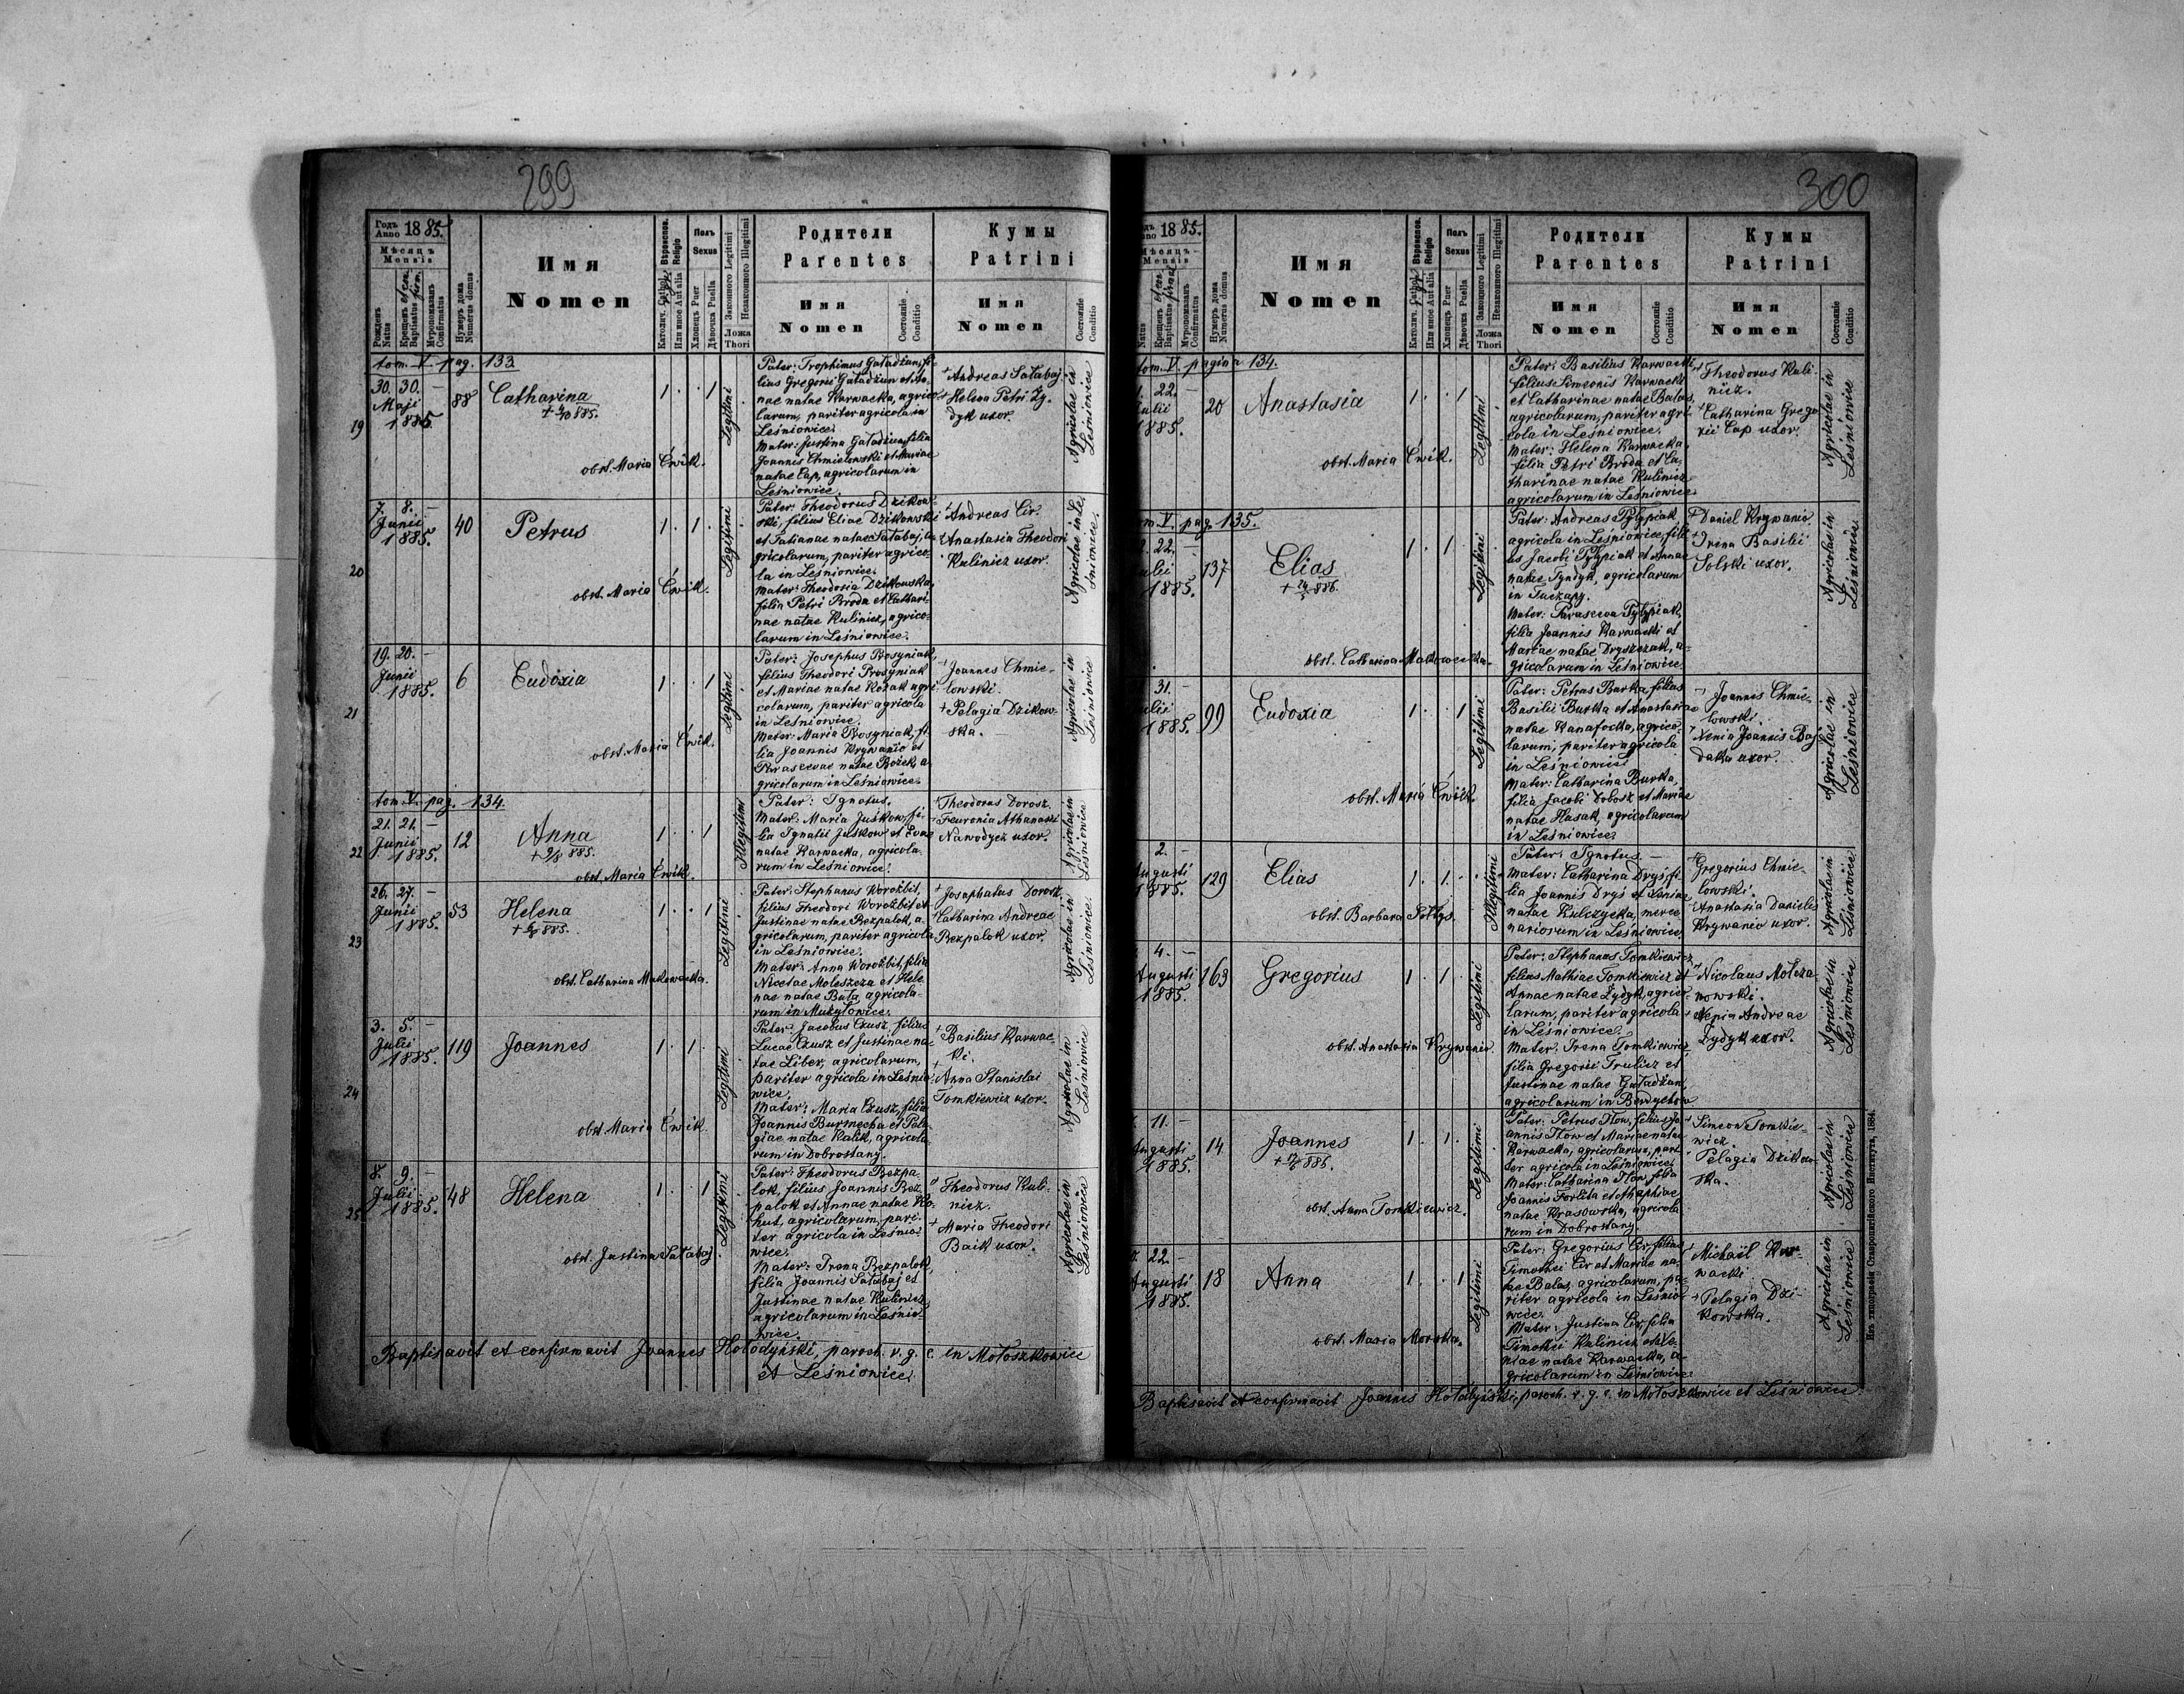 299
Годъ Anno 1885.
Мѣсяцъ
Mensis
Рожденъ Natus
Крещенъ Baptisatus
Муропомазанъ Confirmatus
Нумеръ дома Numerus domus
Имя
Nomen
Вѣроиспов. Religio
Католич. Cathol.
Или иное Aut alia
Полъ
Sexus
Хлопецъ Puer
Дѣвочка Puella
Законного Legitimi
Незаконного Illegitimi
Ложа
Thori
Родители
Parentes
Имя
Nomen
Состояніе
Conditio
Кумы
Patrini
Имя
Nomen
Состояніе
Conditio
tom. V. pag. 133
19
30. 30. –
Maji
1885.
88
Catharina
obst. Maria Ćwik.
1 . . 1
Legitimi
Pater: Trophimus Gaładżun, fi-
lius Gregorii Gaładżun et An-
nae natae Karwacka, agrico-
larum, pariter agricola in
Leśniowice.
Mater: Justina Gaładżun, filia
Joannis Chmielowski et Mariae
natae Cap, agricolarum in
Leśniowice.
Andreas Sałabaj.
Helena Petri Zy-
dyk uxor.
Agricolae in
Leśniowice
20
7. 8. –
Junii
1885.
40
Petrus
obst. Maria Ćwik.
1 . 1 .
Legitimi
Pater: Theodorus Dzikow-
ski, filius Eliae Dzikowski
et Tatianae natae Sałabaj, a-
gricolarum, pariter agrico-
la in Leśniowice.
Mater: Theodosia Dzikowska,
filia Petri Broda et Cathari-
nae natae Kulinicz, agrico-
larum in Leśniowice.
Andreas Cir.
Anastasia Theodori
Kulinicz uxor.
Agricolae in Le-
śniowice.
21
19. 20. –
Junii
1885.
6
Eudoxia
obst. Maria Ćwik.
1 . . 1
Legitimi
Pater: Josephus Prosyniak,
filius Theodori Prosyniak
et Mariae natae Kozak agri-
colarum, pariter agricola
in Leśniowice.
Mater: Maria Prosyniak, fi-
lia Joannis Krywanio et
Parascevae natae Bożek, a-
gricolarum in Leśniowice.
Joannes Chmie-
lowski.
Pelagia Dzikow-
ska.
Agricolae in
Leśniowice
tom. V. pag. 134.
22
21. 21. –
Junii
1885.
12
Anna
obst. Maria Ćwik.
1 . . 1
Illegitimi
Pater: Ignotus.
Mater: Maria Juśkow, fi-
lia Ignatii Juśkow et Evae
natae Karwacka, agricola-
rum in Leśniowice.
Theodorus Dorosz.
Feuronia Athanasii
Nawodycz uxor.
Agricolae in
Leśniowice
23
26. 27. –
Junii
1885.
53
Helena
obst. Catharina Makowecka.
1 . . 1
Legitimi
Pater: Stephanus Worożbit,
filius Theodori Worożbit et
Justinae natae Bezpalok, a-
gricolarum, pariter agricola
in Leśniowice.
Mater: Anna Worożbit, filia
Nicetae Moleszcza et Hele-
nae natae Buła, agricola-
rum in Mużyłowice.
Josaphatus Dorosz.
Catharina Andreae
Bezpalok uxor.
Agricolae in
Leśniowice.
24
3. 5. –
Julii
1885.
119
Joannes
obst. Maria Ćwik.
1 . 1 .
Legitimi
Pater: Jacobus Czusz, filius
Lucae Czusz et Justinae na-
tae Liber, agricolarum,
pariter agricola in Leśnio-
wice.
Mater: Maria Czusz, filia
Joannis Burmecha et Pela-
giae natae Kalik, agricola-
rum in Dobrostany.
Basilius Karwac-
ki.
Anna Stanislai
Tomkiewicz uxor.
Agricolae in
Leśniowice
25
8. 9. –
Julii
1885.
48
Helena
obst. Justina Sałabaj.
1 . . 1
Legitimi
Pater: Theodorus Bezpa-
lok, filius Joannis Bez-
palok et Annae natae Ko-
hut, agricolarum, pari-
ter agricola in Leśnio-
wice.
Mater: Irena Bezpalok,
filia Joannis Sałabaj et
Justinae natae Kulinicz,
agricolarum in Leśnio-
wice.
Theodorus Kuli-
nicz.
Maria Theodori
Baik uxor.
Agricolae in
Leśniowice
Baptisavit et confirmavit Joannes Hołodyński, paroch. r. g. c. in Mołoszkowice
et Leśniowice.
300
1885.
Мѣсяцъ
Mensis
Natus
Крещенъ Baptisatus
Муропомазанъ Confirmatus
Нумеръ дома Numerus domus
Имя
Nomen
Вѣроиспов. Religio
Католич. Cathol.
Или иное Aut alia
Полъ
Sexus
Хлопецъ Puer
Дѣвочка Puella
Законного Legitimi
Незаконного Illegitimi
Ложа
Thori
Родители
Parentes
Имя
Nomen
Состояніе
Conditio
Кумы
Patrini
Имя
Nomen
Состояніе
Conditio
tom. V. pagina 134.
22. –
ulii
1885.
20
Anastasia
obst. Maria Ćwik.
1 . . 1
Legitimi
Pater: Basilius Karwacki,
filius Simeonis Karwacki
et Catharinae natae Balas,
agricolarum, pariter agri-
cola in Leśniowice.
Mater: Helena Karwacka,
filia Petri Broda et Ca-
tharinae natae Kulinicz
agricolarum in Leśniowice.
Theodorus Kuli-
nicz.
Catharina Grego-
rii Cap uxor.
Agricolae in
Leśniowice
om. V. pag. 135.
22. –
ulii
1885.
137
Elias
obst. Catharina Makowecka.
1 . 1 .
Legitimi
Pater: Andreas Pyłypiak
agricola in Leśniowice, fili-
us Jacobi Pyłypiak et Annae
natae Tyndyk, agricolarum
in Tuczapy.
Mater: Parasceva Pyłypiak,
filia Joannis Karwacki et
Mariae natae Dryszczak, a-
gricolarum in Leśniowice.
Daniel Krywanio.
Irena Basilii
Solski uxor.
Agricolae in
Leśniowice
31. –
ulii
1885.
99
Eudoxia
obst. Maria Ćwik.
1 . . 1
Legitimi
Pater: Petrus Burka, filius
Basilii Burka et Anastasiae
natae Kanafocka, agrico-
larum, pariter agricola
in Leśniowice.
Mater: Catharina Burka,
filia Jacobi Dobosz et Mariae
natae Husak, agricolarum
in Leśniowice.
Joannes Chmie-
lowski.
Xenia Joannis Baj-
daka uxor.
Agricolae in
Leśniowice
2. –
Augusti
1885.
129
Elias
obst. Barbara Sołtys.
1 . 1 .
Illegitimi
Pater: Ignotus.
Mater: Catharina Dryś, fi-
lia Joannis Dryś et Xeniae
natae Kulczycka, merce-
nariorum in Leśniowice.
Gregorius Chmie-
lowski.
Anastasia Danielis
Krywanio uxor.
Agricolae in
Leśniowice
4. –
Augusti
1885.
163
Gregorius
obst. Anastasia Krywanio.
1 . 1 .
Legitimi
Pater: Stephanus Tomkiewicz,
filius Mathiae Tomkiewicz et
Annae natae Zydyk, agrico-
larum, pariter agricola
in Leśniowice.
Mater: Irena Tomkiewicz,
filia Gregorii Trulicz et
Justinae natae Gaładżun,
agricolarum in Berdychow
Nicolaus Mołcza-
nowski.
Xenia Andreae
Zydyk uxor.
Agricolae in
Leśniowice
11. –
Augusti
1885.
14
Joannes
obst. Anna Tomkiewicz.
1 . 1 .
Legitimi
Pater: Petrus Iłow, filius Jo-
annis Iłow et Mariae natae
Karwacka, agricolarum, pari-
ter agricola in Leśniowice.
Mater: Catharina Iłow, filia
Joannis Forlita et Agaphiae
natae Krasowska, agricola-
rum in Dobrostany.
Simeon Tomkie-
wicz.
Pelagia Dzikow-
ska.
Agricolae in
Leśniowice
22. –
Augusti
1885.
18
Anna
obst. Maria Morska.
1 . . 1
Legitimi
Pater: Gregorius Cir, filius
Timothei Cir et Mariae na-
tae Balas, agricolarum, pa-
riter agricola in Leśnio-
wice.
Mater: Justina Cir, filia
Timothei Kulinicz et Xe-
niae natae Karwacka, a-
gricolarum in Leśniowice.
Michaël Kar-
wacki
Pelagia Dzi-
kowska.
Agricolae in
Leśniowice
Baptisavit et confirmavit Joannes Hołodyński, paroch. r. g. c. in Mołoszkowice et Leśniowice
Изъ типографіи Ставропигійского Института, 1884.